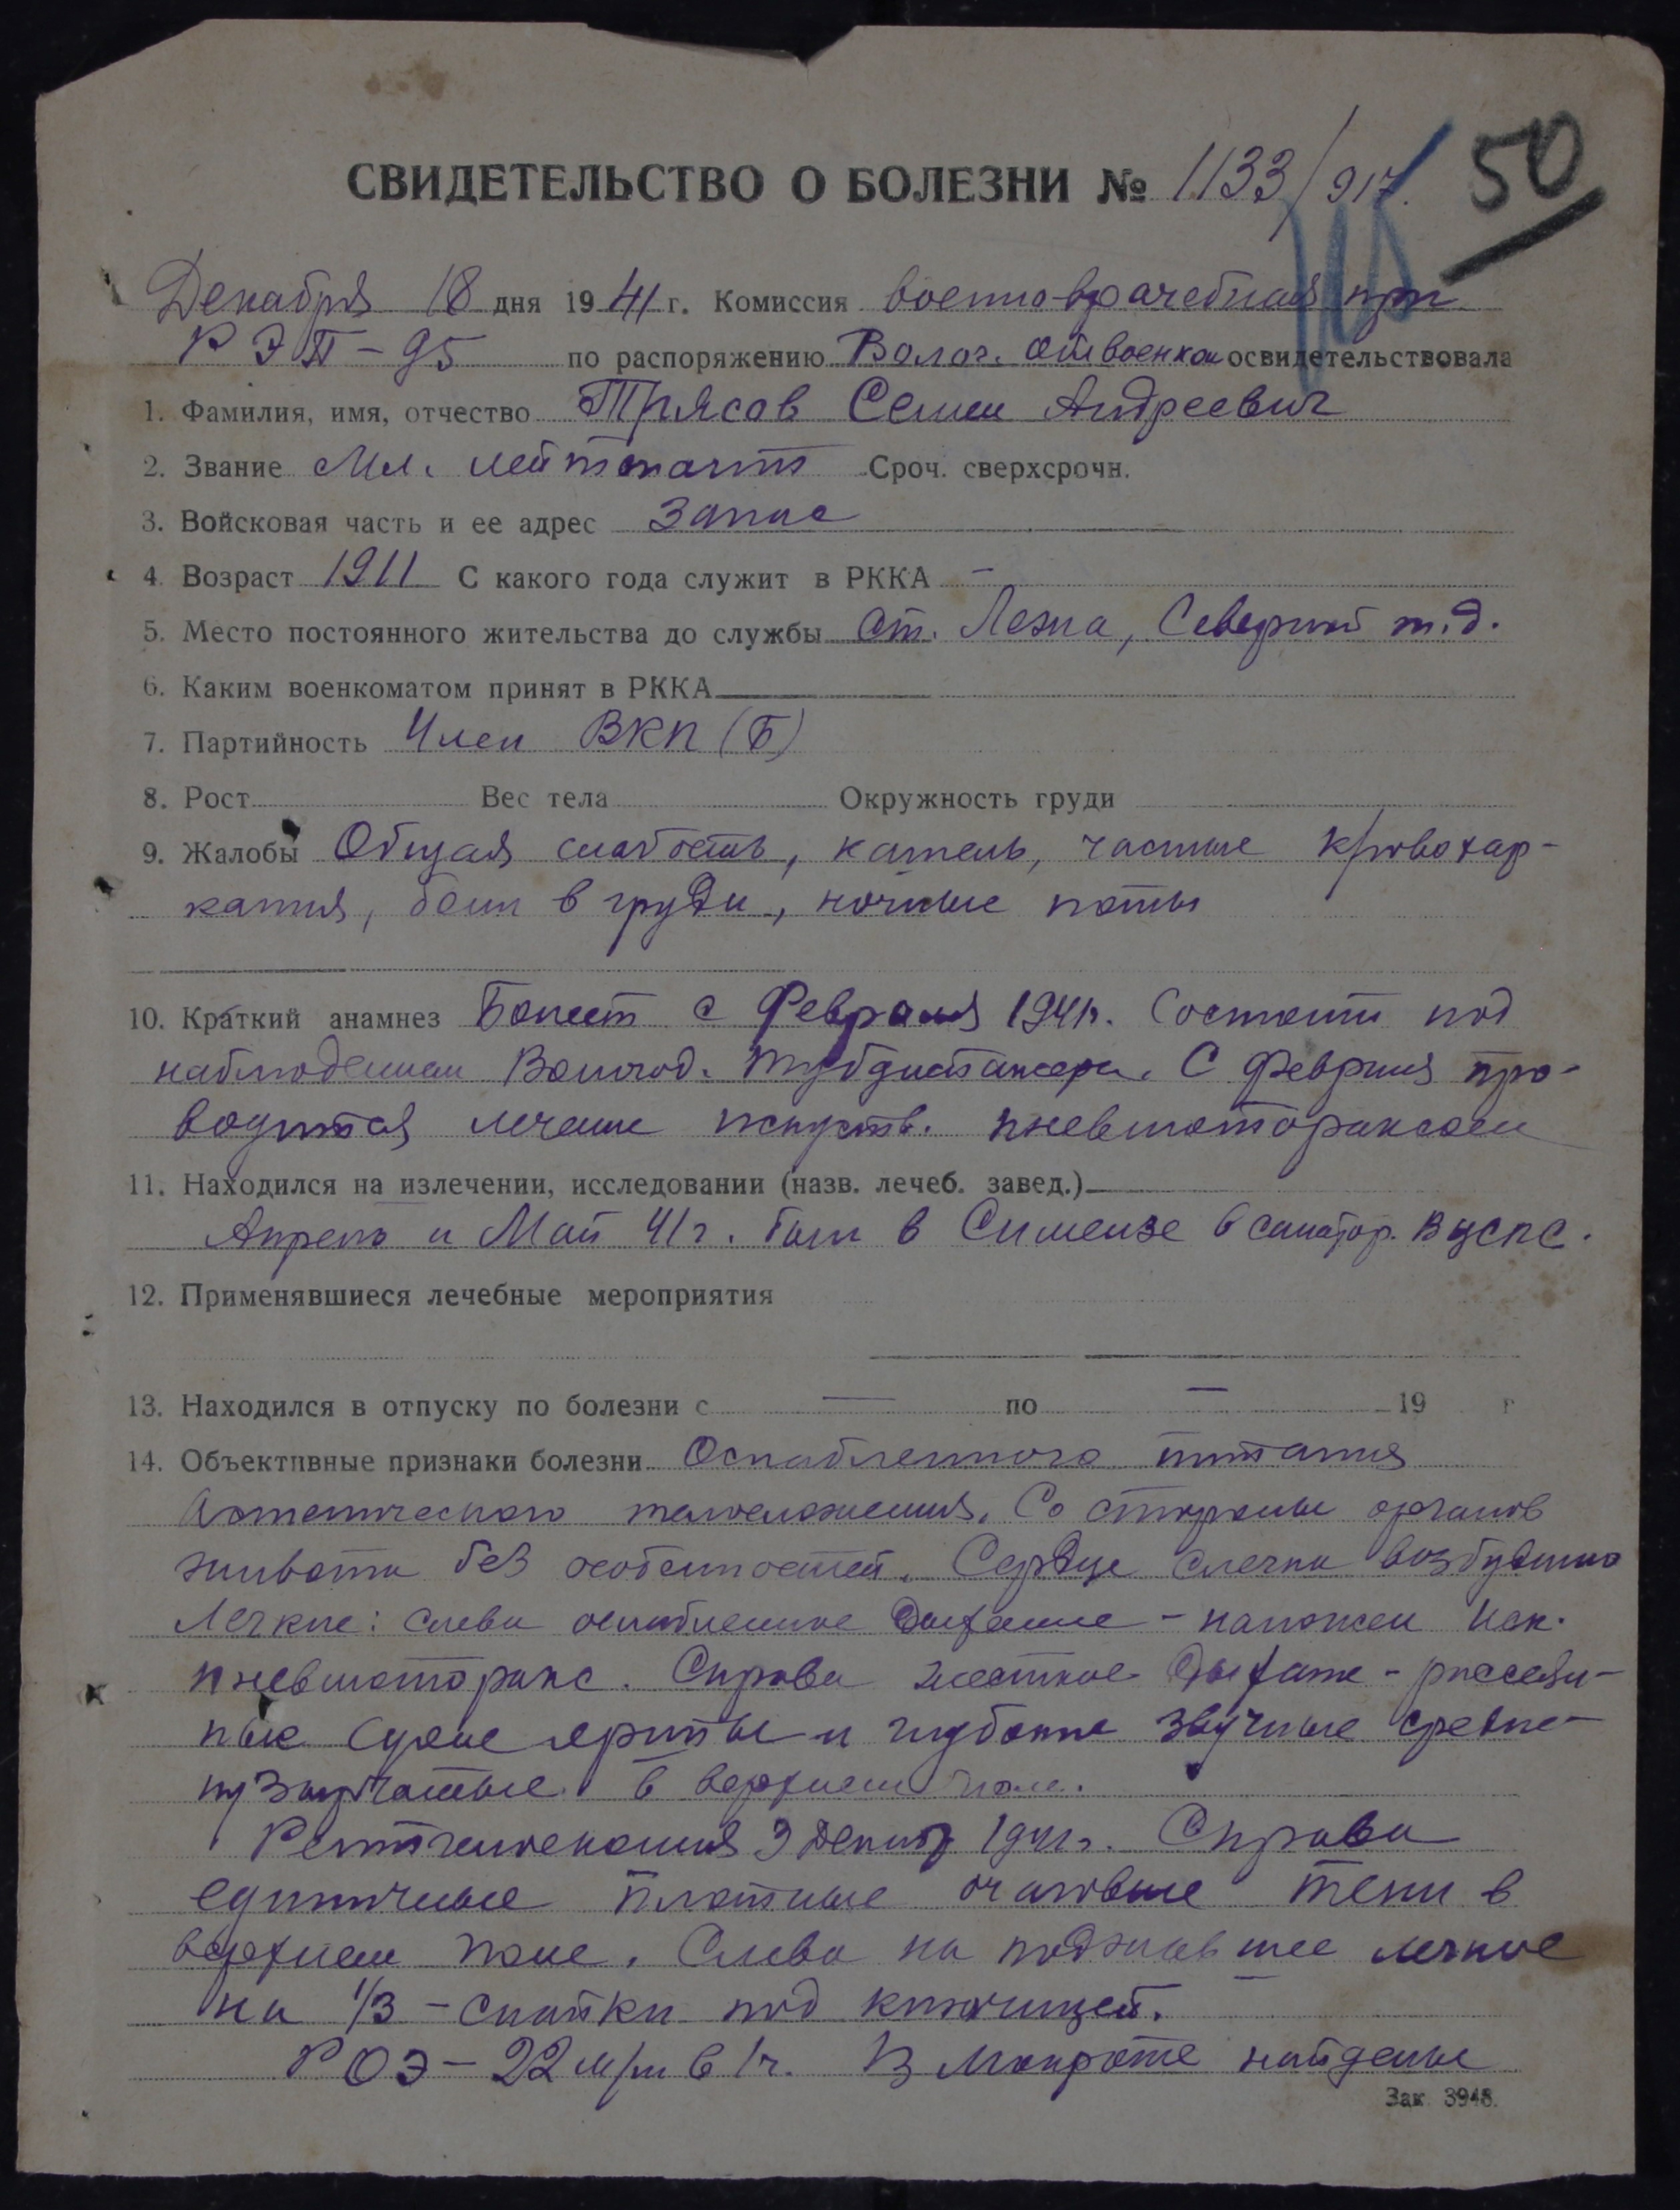 50
СВИДЕТЕЛЬСТВО О БОЛЕЗНИ № 1133/917.
Декабря 18 дня 1941 г. Комиссия военно-врачебная при
РЭП-95 по распоряжению Волог. облвоенком освидетельствовала
1. Фамилия, имя, отчество Трясов Семен Андреевич
2. Звание Мл. лейтенант Сроч. сверхсрочн.
3. Войсковая часть и ее адрес запас
4. Возраст 1911 С какого года служит в РККА –
5. Место постоянного жительства до службы ст. Лежа, Северной ж.д.
6. Каким военкоматом принят в РККА
7. Партийность Член ВКП(б)
8. Рост Вес тела Окружность груди
9. Жалобы Общая слабость, кашель, частые кровохар-
кания, боли в груди, ночные поты
10. Краткий анамнез Болеет с Февраля 1941г. Состоит под
наблюдением Вологод. тубдиспансера. С февраля про-
водится лечение искуств. пневмотораксом
11. Находился на излечении, исследовании (назв. лечеб. завед.)
Апрель и Май 41г. был в Симеизе в санатор. ВЦСПС.
12. Применявшиеся лечебные мероприятия
13. Находился в отпуску по болезни с — по — 19 г
14. Объективные признаки болезни Ослабленного питания
Астенического телосложения. Со стороны органов
живота без особенностей. Сердце слегка возбуждено
Легкие: слева ослабленное дыхание - наложен иск.
пневмоторакс. Справа жесткое дыхание - рассеян-
ные сухие хрипы и глубокие звучные средне-
пузырчатые в верхнем поле.
Рентгеноскопия 9 декабр 1941г. Справа
единичные плотные очаговые тени в
верхнем поле. Слева на поджавшее легкое
на 1/3 – спайки под ключицей.
РОЭ – 22 м/м в 1ч. В мокроте найдены
Зак. 3948.